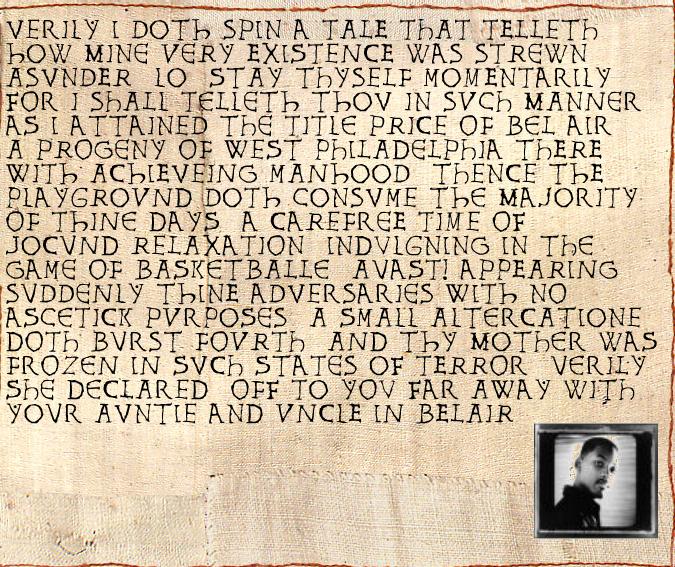 VERILY I DOTh SPIN A TALE ThAT TELLETh
hOW MINE VERY EXISTENCE WAS STREWN
ASVNDER LO STAY ThYSELF MOMENTARILY
FOR I ShALL TELLETh ThOV IN SVCh MANNER
AS I ATTAINED ThE TITLE PRICE OF BEL AIR
A PROGENY OF WEST PhILADELPhIA ThERE
WITh AChIEVEING MANhOOD ThENCE ThE
PLAYGROVND DOTh CONSVME ThE MAJORITY
OF ThINE DAYS A CAREFREE TIME OF
JOCVND RELAXATION INDVLGNING IN ThE
GAME OF BASKETBALLE AVAST! APPEARING
SVDDENLY ThINE ADVERSARIES WITh NO
ASCETICK PVRPOSES A SMALL ALTERCATIONE
DOTh BVRST FOVRTh AND ThY MOThER WAS
FROZEN IN SVCh STATES OF TERROR VERILY
ShE DECLARED OFF TO YOV FAR AWAY WITh
YOVR AVNTIE AND VNCLE IN BELAIR